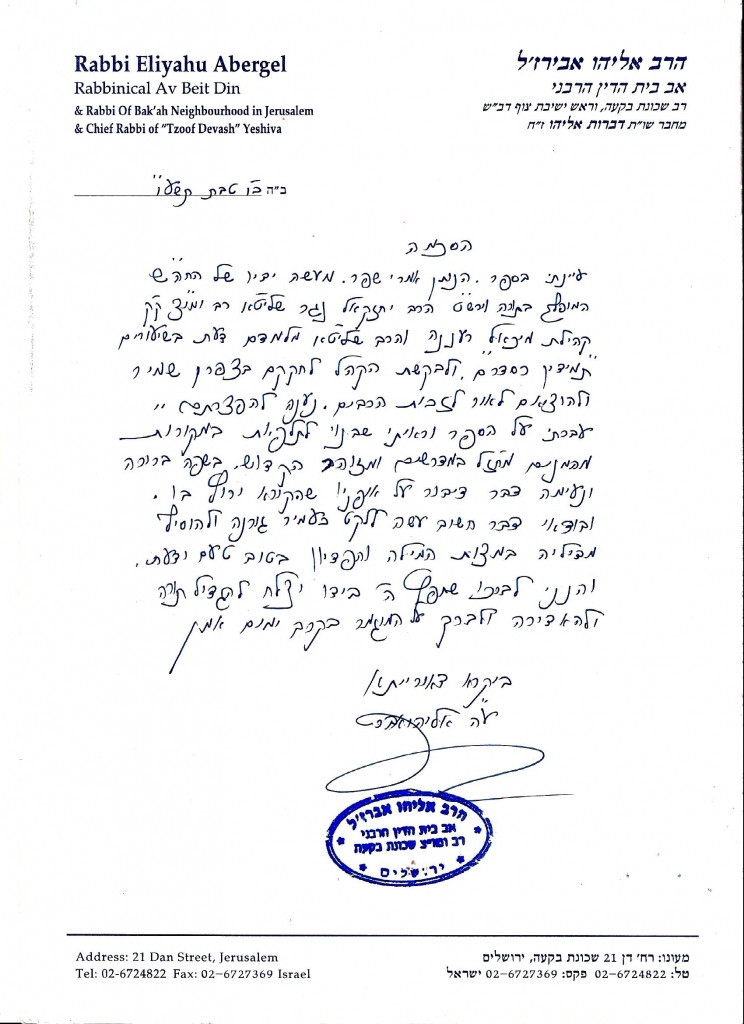 Rabbi Eliyahu Abergel
Rabbinical Av Beit Din
& Rabbi Of Bak'ah Neighbourhood in Jerusalem
& Chief Rabbi of "Tzoof Devash" Yeshiva
הרב אליהו אבירז'ל
אב בית הדין הרבני
רב שכונת בקעה, וראש ישיבת צוף דב"ש
מחבר שו"ת דברות אליהו ז"ח
ב"ה טבת תשע"ו
הסכמה
עיינתי בספר הנתן אמרי שפר. מעשה ידיו של החה"ש
המופלג בתורה הרב יחזקאל נגר שליט"א רב ומו"צ ק"ק
קהילת מיכאל רעננה והרב שליט"א מלמדם דעת בשיעורים
תמידין כסדרם, ולבקשת הקהל לחקקם בצפרן שמיר
ולהוציאם לאור לזכות הרבים. נענה להפצרתם
עברתי על הספר וראיתי שבנוי לתלפיות במקורות
מהמנים מחז"ל במדרשים ומזוהר הקדוש, בשפה ברורה
ונעימה דבר דיבור על אופניו שהקורא ירוץ בו.
ובודאי דבר חשוב עשה ללקט כעמיר גורנה ולהוסיף
מדיליה במצות המילה והפדיון בטוב טעם ודעת.
והנני לברכו שחפץ ה' בידו יצלח להגדיל תורה
ולהאדירה ולברך על המוגמר בקרב ימים אמן
ביקרא דאורייתא
ע"ה אליהו אברג'ל
הרב אליהו אברז'ל
אב בית הדין הרבני
רב ומו"צ שכונת בקעה
ירושלים
Address: 21 Dan Street, Jerusalem
Tel: 02-6724822 Fax: 02-6727369 Israel
מעונו: רח' דן 21 שכונת בקעה, ירושלים
טל: 02-6724822 פקס: 02-6727369 ישראל